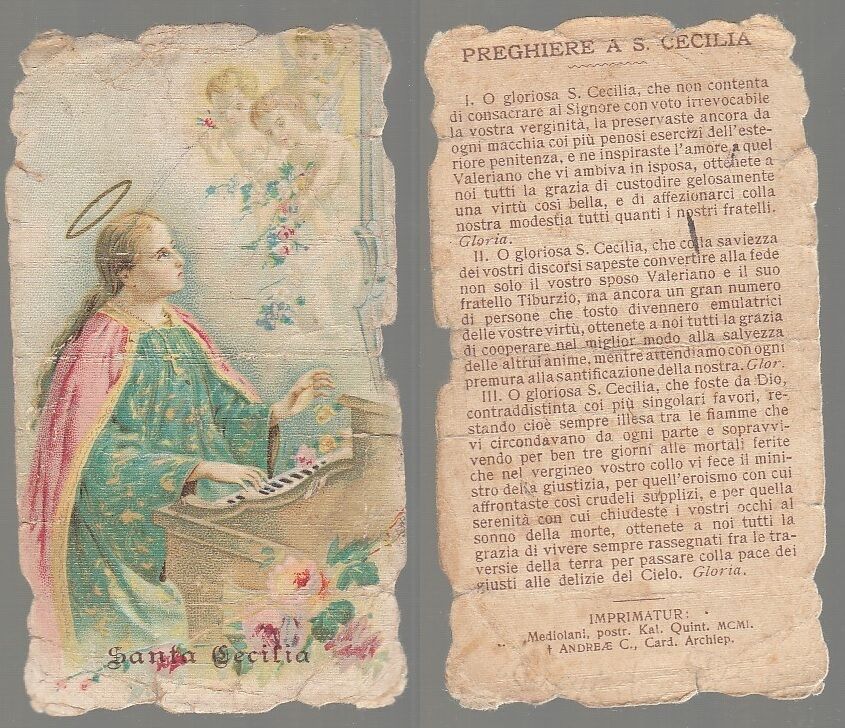 Santa Cecilia
PREGHIERE A S. CECILIA
I. O gloriosa S. Cecilia, che non contenta
di consacrare al Signore con voto irrevocabile
la vostra verginità, la preservaste ancora da
ogni macchia coi più penosi esercizi dell'este-
riore penitenza, e ne inspiraste l'amore a quel
Valeriano che vi ambiva in isposa, ottenete a
noi tutti la grazia di custodire gelosamente
una virtù così bella, e di affezionarci colla
nostra modestia tutti quanti i nostri fratelli.
Gloria.
II. O gloriosa S. Cecilia, che colla saviezza
dei vostri discorsi sapeste convertire alla fede
non solo il vostro sposo Valeriano e il suo
fratello Tiburzio, ma ancora un gran numero
di persone che tosto divennero emulatrici
delle vostre virtù, ottenete a noi tutti la grazia
di cooperare nel miglior modo alla salvezza
delle altrui anime, mentre attendiamo con ogni
premura alla santificazione della nostra. Glor.
III. O gloriosa S. Cecilia, che foste da Dio,
contraddistinta coi più singolari favori, re-
stando cioè sempre illesa tra le fiamme che
vi circondavano da ogni parte e sopravvi-
vendo per ben tre giorni alle mortali ferite
che nel vergineo vostro collo vi fece il mini-
stro della giustizia, per quell'eroismo con cui
affrontaste così crudeli supplizi, e per quella
serenità con cui chiudeste i vostri occhi al
sonno della morte, ottenete a noi tutti la
grazia di vivere sempre rassegnati fra le tra-
versie della terra per passare colla pace dei
giusti alle delizie del Cielo. Gloria.
IMPRIMATUR:
Mediolani, postr. Kal. Quint. MCMI.
† ANDREÆ C., Card. Archiep.